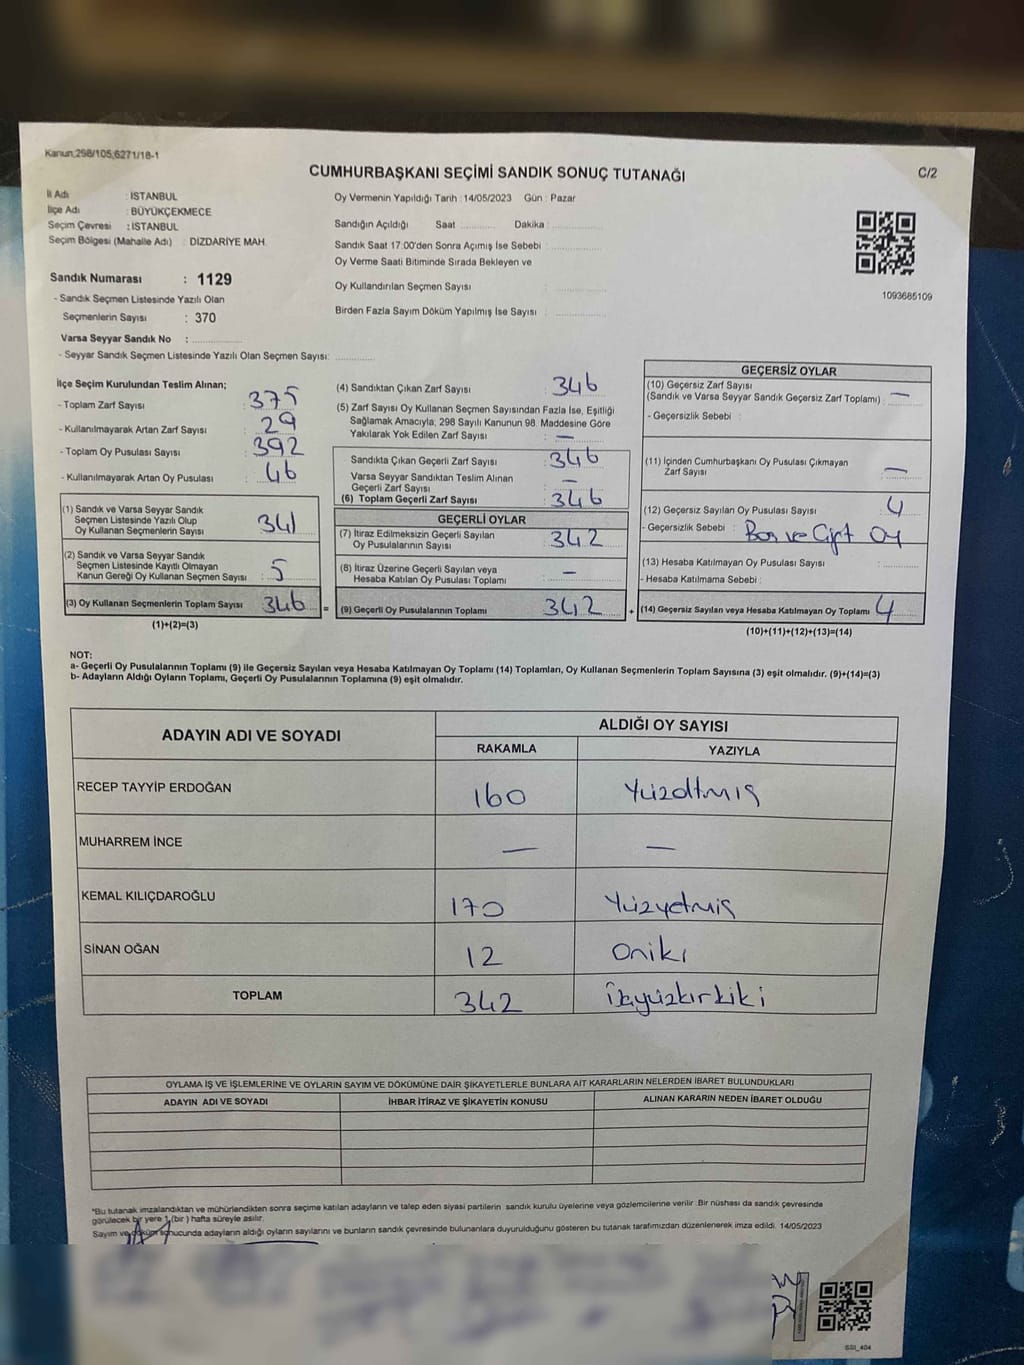 Kanun;298/105;6271/18-1
CUMHURBAŞKANI SEÇİMİ SANDIK SONUÇ TUTANAĞI
C/2
İl Adı : İSTANBUL
İlçe Adı : BÜYÜKÇEKMECE
Seçim Çevresi : İSTANBUL
Seçim Bölgesi (Mahalle Adı) : DİZDARİYE MAH.
Oy Vermenin Yapıldığı Tarih : 14/05/2023 Gün : Pazar
Sandığın Açıldığı Saat ............ Dakika : ............
Sandık Saat 17:00'den Sonra Açımış İse Sebebi : ............
Oy Verme Saati Bitiminde Sırada Bekleyen ve
Oy Kullandırılan Seçmen Sayısı : ............
Birden Fazla Sayım Döküm Yapılmış İse Sayısı : ............
1093685109
Sandık Numarası : 1129
- Sandık Seçmen Listesinde Yazılı Olan
Seçmenlerin Sayısı : 370
Varsa Seyyar Sandık No : ............
- Seyyar Sandık Seçmen Listesinde Yazılı Olan Seçmen Sayısı: ............
İlçe Seçim Kurulundan Teslim Alınan;
- Toplam Zarf Sayısı : 375
- Kullanılmayarak Artan Zarf Sayısı : 29
- Toplam Oy Pusulası Sayısı : 392
- Kullanılmayarak Artan Oy Pusulası : 46
(1) Sandık ve Varsa Seyyar Sandık
Seçmen Listesinde Yazılı Olup
Oy Kullanan Seçmenlerin Sayısı : 341
(2) Sandık ve Varsa Seyyar Sandık
Seçmen Listesinde Kayıtlı Olmayan
Kanun Gereği Oy Kullanan Seçmen Sayısı : 5
(3) Oy Kullanan Seçmenlerin Toplam Sayısı : 346
(1)+(2)=(3)
(4) Sandıktan Çıkan Zarf Sayısı : 346
(5) Zarf Sayısı Oy Kullanan Seçmen Sayısından Fazla İse, Eşitliği
Sağlamak Amacıyla; 298 Sayılı Kanunun 98. Maddesine Göre
Yakılarak Yok Edilen Zarf Sayısı : —
Sandıkta Çıkan Geçerli Zarf Sayısı : 346
Varsa Seyyar Sandıktan Teslim Alınan
Geçerli Zarf Sayısı : —
(6) Toplam Geçerli Zarf Sayısı : 346
GEÇERLİ OYLAR
(7) İtiraz Edilmeksizin Geçerli Sayılan
Oy Pusulalarının Sayısı : 342
(8) İtiraz Üzerine Geçerli Sayılan veya
Hesaba Katılan Oy Pusulası Toplamı : —
= (9) Geçerli Oy Pusulalarının Toplamı : 342
GEÇERSİZ OYLAR
(10) Geçersiz Zarf Sayısı
(Sandık ve Varsa Seyyar Sandık Geçersiz Zarf Toplamı) : —
- Geçersizlik Sebebi :
(11) İçinden Cumhurbaşkanı Oy Pusulası Çıkmayan
Zarf Sayısı : —
(12) Geçersiz Sayılan Oy Pusulası Sayısı : 4
- Geçersizlik Sebebi : Boş ve Çift Oy
(13) Hesaba Katılmayan Oy Pusulası Sayısı : ............
- Hesaba Katılmama Sebebi :
+ (14) Geçersiz Sayılan veya Hesaba Katılmayan Oy Toplamı : 4
(10)+(11)+(12)+(13)=(14)
NOT:
a- Geçerli Oy Pusulalarının Toplamı (9) ile Geçersiz Sayılan veya Hesaba Katılmayan Oy Toplamı (14) Toplamları, Oy Kullanan Seçmenlerin Toplam Sayısına (3) eşit olmalıdır. (9)+(14)=(3)
b- Adayların Aldığı Oyların Toplamı, Geçerli Oy Pusulalarının Toplamına (9) eşit olmalıdır.
ADAYIN ADI VE SOYADI
ALDIĞI OY SAYISI
RAKAMLA YAZIYLA
RECEP TAYYİP ERDOĞAN 160 Yüzaltmış
MUHARREM İNCE — —
KEMAL KILIÇDAROĞLU 170 Yüzyetmiş
SİNAN OĞAN 12 Oniki
TOPLAM 342 üçyüzkırkiki
OYLAMA İŞ VE İŞLEMLERİNE VE OYLARIN SAYIM VE DÖKÜMÜNE DAİR ŞİKAYETLERLE BUNLARA AİT KARARLARIN NELERDEN İBARET BULUNDUKLARI
ADAYIN ADI VE SOYADI İHBAR İTİRAZ VE ŞİKAYETİN KONUSU ALINAN KARARIN NEDEN İBARET OLDUĞU
*Bu tutanak imzalandıktan ve mühürlendikten sonra seçime katılan adayların ve talep eden siyasi partilerin sandık kurulu üyelerine veya gözlemcilerine verilir. Bir nüshası da sandık çevresinde
görülecek bir yere 1 (bir) hafta süreyle asılır.
Sayım ve döküm sonucunda adayların aldığı oyların sayılarını ve bunların sandık çevresinde bulunanlara duyurulduğunu gösteren bu tutanak tarafımızdan düzenlenerek imza edildi. 14/05/2023
SSI_404